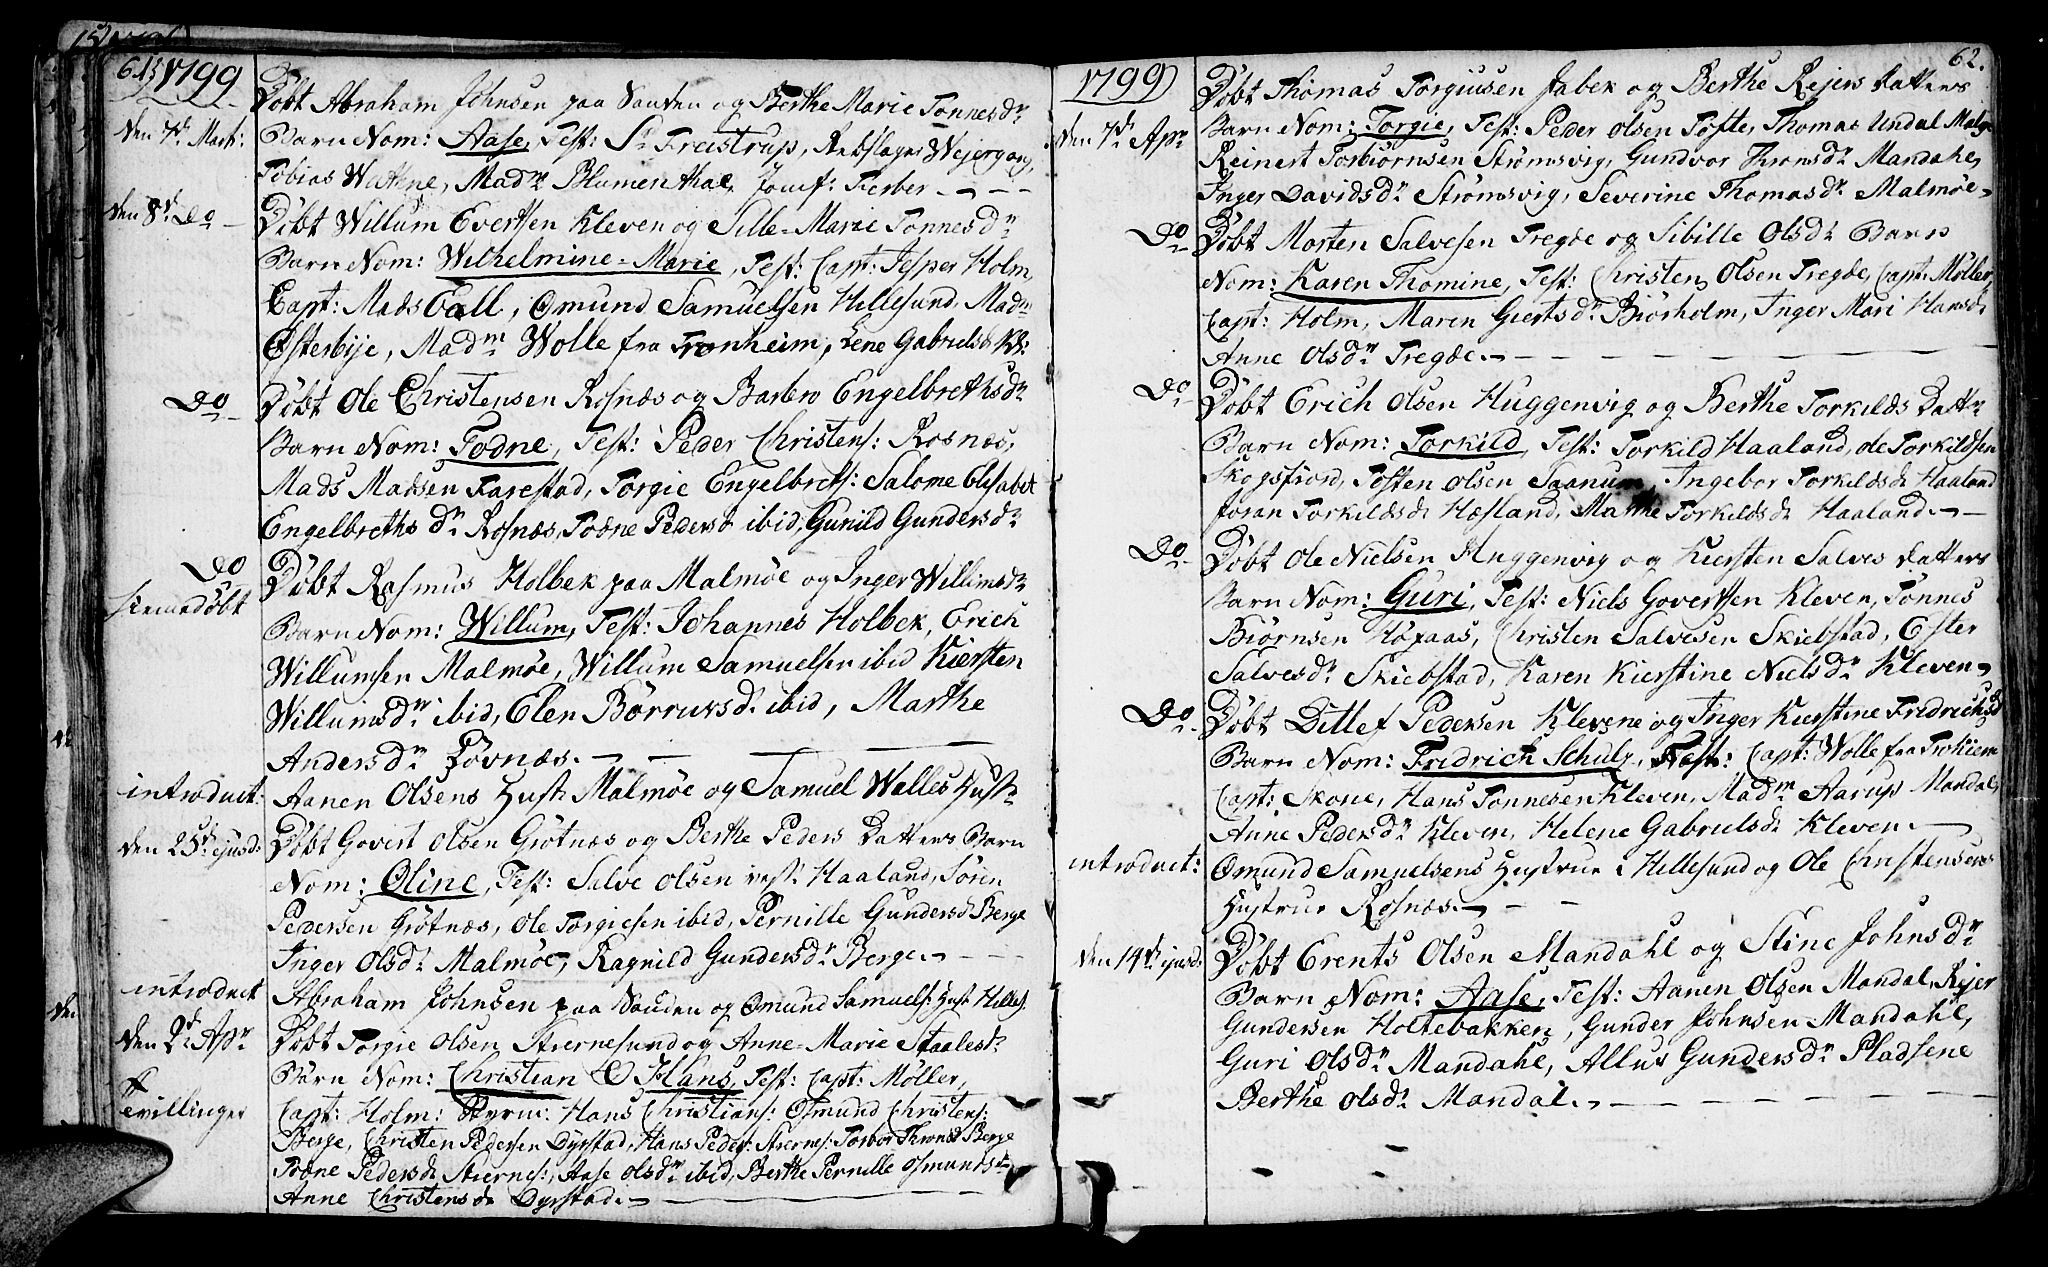 61
1799
Døbt Abraham Johnsen paa Sanden og Berthe Marie Tønnesdr
den 7de Marti: Barn Nom: Aase, Test: Sr Freistrup, Rebslager Wejergang,
Tobias Watne, Madme Blumenthal, Jomf: Ferber
den 8de do Døbt Willum Evertsen Kleven og Sille-Marie Tønnesdr
Barn Nom: Wilhelmine-Marie, Test: Capt: Jesper Holm,
Capt: Mads Eall, Omund Samuelsen Hillesund, Madme
Østerbye, Madme Wolle fra Tronheim, Lene Gabrielsd
Do Døbt Ole Christensen Rosnæs og Barbro Engelbrethsdr
Barn Nom: Todne, Test: Peder Christens: Rosnæs,
Mads Madsen Farestad, Torgie Engelbrets: Salome Elisabet
Engelbrethsdr Rosnæs, Todne Pedersd ibid, Gunild Gundersdr
Do Døbt Rasmus Holbek paa Malmøe og Inger Willumsdr
hiemmedøbt Barn Nom: Willum, Test: Johannes Holbek, Erich
Willumsen Malmøe, Willum Samuelsen ibid Kiersten
Willumsdr ibid, Elen Børrursdr ibid, Marthe
Andersdr Løvnæs.
introduct: Aanen Olsens Hustr Malmøe og Samuel Walles Hustr
den 25de ejusd: Døbt Govert Olsen Grøtnæs og Berthe Peders Datters Barn
Nom: Oline, Test: Salve Olsen vest: Haaland, Sören
Pedersen Grøtnæs, Ole Torgiesen ibid, Pernille Gundersd Berge
Inger Olsdr Malmøe, Ragnild Gundersdr Berge
introduct Abraham Johnsen paa Sanden og Omund Samuels: Hust Hilles:
den 2de Apr Døbt Torgie Olsen Stiernesund og Anne-Marie Staalesdr
Barn Nom: Christian & Hans, Test: Capt: Møller,
tvillinger Capt: Holm: Styrm: Hans Christians: Osmund Christens:
Berge, Christen Pedersen Dyrstad, Hans Peders: Stiernes: Torbor Throndsd Berge
Todne Pedersdr Stiernes:, Aase Olsdr ibid, Berthe Pernille Osmundsdr
Anne Christensdr Dyrstad.
62.
1799
Døbt Thomas Torgiusen Jabek og Berthe Rejers Datters
den 7de Apr Barn Nom: Torgie, Test: Peder Olsen Tofte, Thomas Undal Malmø
Reinert Torbiørnsen Strømsvig, Gundvor Thronsdr Mandahl,
Inger Davidsdr Strømsvig, Severine Thomasdr Malmøe
Do Døbt Morten Salvesen Tregde og Sibille Olsdr Barn
Nom: Karen Thomine, Test: Christen Olsen Tregde, Capt: Møller,
Capt: Holm, Maren Giertsdr Biørholm, Inger Mari Hansdr
Anne Olsdr Tregde.
Do Døbt Erich Olsen Huggenvig og Berthe Torkilds Dattr
Barn Nom: Torkild, Test: Torkild Haaland, Ole Torkildsen
Skogsfiord, Tosten Olsen Saanum, Ingebor Torkildsdr Haaland
Joran Torkildsdr Hæsland, Marthe Torkildsdr Haaland.
Do Døbt Ole Nielsen Huggenvig og Kiersten Salves Datters
Barn Nom: Guri, Test: Niels Govertsen Kleven, Tønnes
Biørnsen Høyaas, Christen Salvesen Skiebstad, Ester
Salvesdr Skiebstad, Karen Kierstine Nielsdr Kleven
Do Døbt Ditlef Pedersen Klevene og Inger Kierstine Fridrichsd
Barn Nom: Fridrich Schulz, Test: Capt: Wolle fra Trohiem
Capt: Skone, Hans Tønnesen Kleven, Madme Aarup Mandal,
Anne Pedersdr Kleven, Helene Gabrielsdr Kleven
introduct: Omund Samuelsens Hustrue Hillesund og Ole Christensens
Hustrue Rosnæs.
den 14de ejusd: Døbt Erents Olsen Mandahl og Stine Johnsdr
Barn Nom: Aase, Test: Aanen Olsen Mandal, Rejer
Gundersen Holtebakken, Gunder Johnsen Mandahl,
Guri Olsdr Mandahl, Allus Gundersdr Pladsene
Berthe Olsdr Mandal.